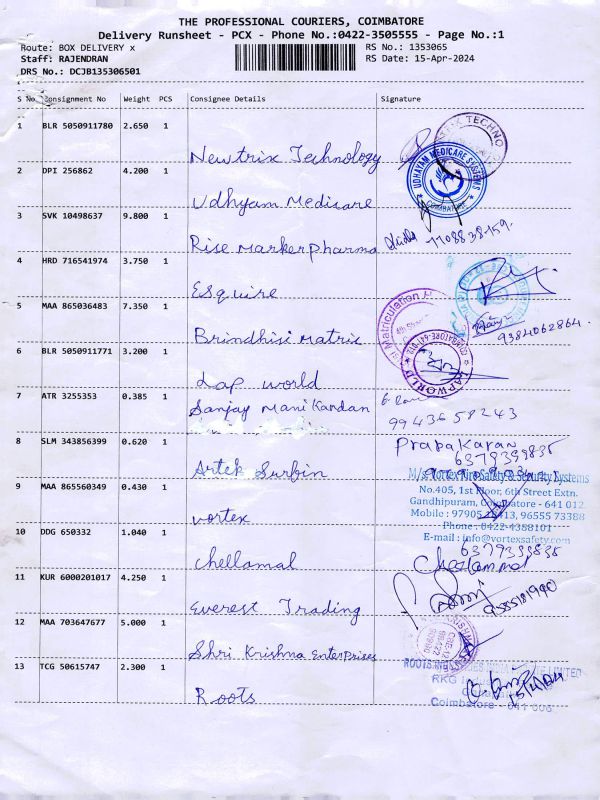 THE PROFESSIONAL COURIERS, COIMBATORE
Delivery Runsheet - PCX - Phone No.:0422-3505555 - Page No.:1
Route: BOX DELIVERY x
RS No.: 1353065
Staff: RAJENDRAN
RS Date: 15-Apr-2024
DRS No.: DCJB135306501
S No Consignment No Weight PCS Consignee Details Signature
1 BLR 5050911780 2.650 1
Newtrix Technology
2 DPI 256862 4.200 1
UDHAYAM MEDICARE SYSTEMS
COIMBATORE
Udhyam Medicare
3 SVK 10498637 9.800 1
Rise Markerpharma
4 HRD 716541974 3.750 1
Esquire
5 MAA 865036483 7.350 1
Matriculation
9384062864
Brindhisi Matric
6 BLR 5050911771 3.200 1
LAPWORLD
Lap world
7 ATR 3255353 0.385 1
Sanjay Manikandan
99436 58243
8 SLM 343856399 0.620 1
Prabakaran
6379399835
Artek Surfin
M/s. Vortex Fire Safety & Security Systems
9 MAA 865560349 0.430 1
No.405, 1st Floor, 6th Street Extn.
Gandhipuram, Coimbatore - 641 012
Mobile : 97905 413, 96555 73388
vortex
Phone : 0422-4358101
10 DDG 650332 1.040 1
E-mail : info@vortexsafety.com
6379399835
chellamal
Chellammal
11 KUR 6000201017 4.250 1
Everest Trading
12 MAA 703647677 5.000 1
Shri Krishna Enterprises
13 TCG 50615747 2.300 1
ROOTS LIMITED
RKG
Coimbatore
Roots